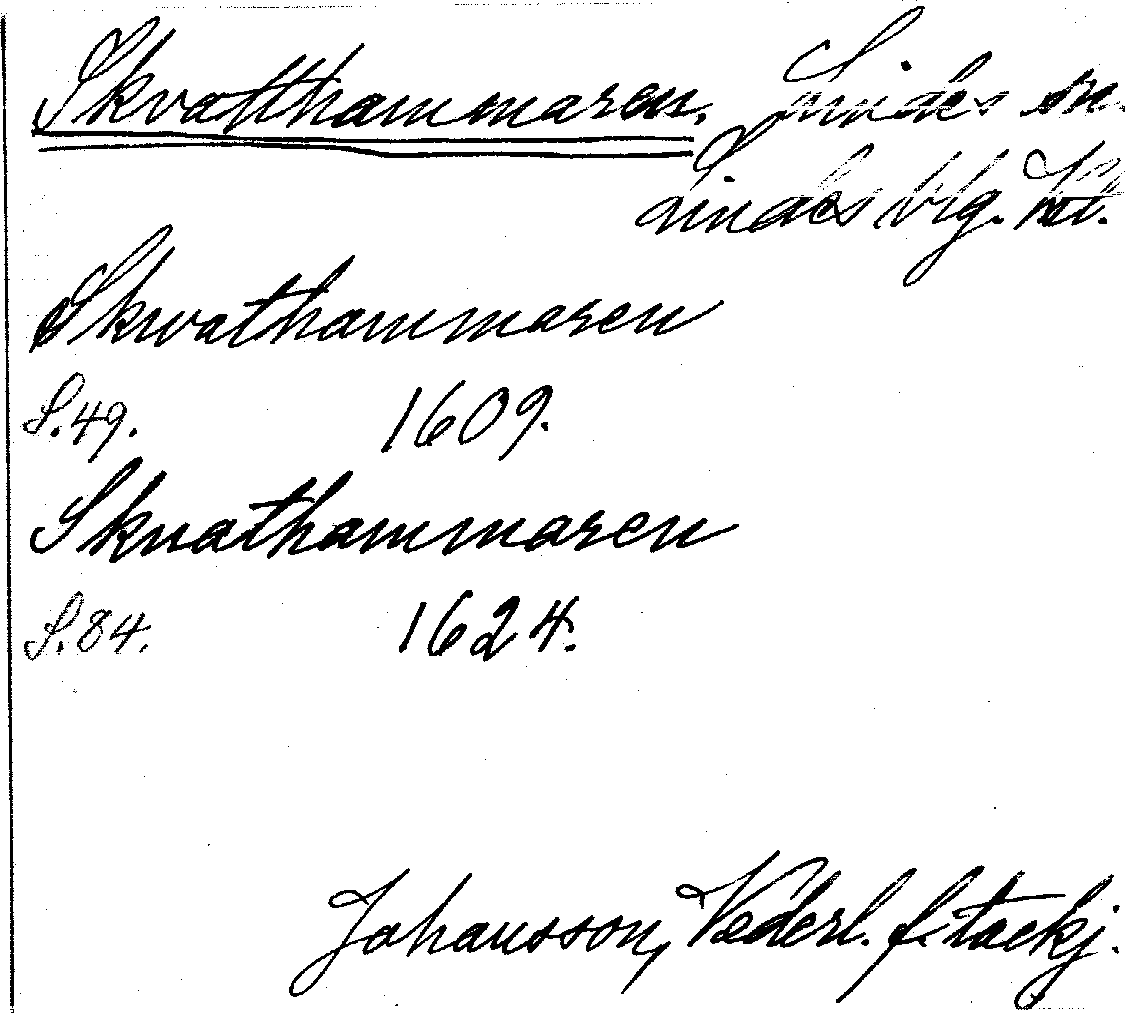 Skvatthammaren. Lindes sn.
Lindes blg. Vstl.
Skvathammaren
S.49. 1609.
Skvathammaren
S.84. 1624.
Johansson, Vederl. f. tackj.